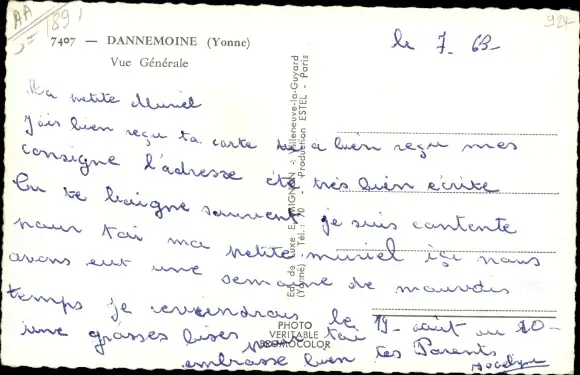 AA
89
924
7407 — DANNEMOINE (Yonne)
Vue Générale
le 7_ 63_
Ma petite Muriel
J'ois bien reçu ta carte tu a bien reçu mes
consigne l'adresse été très bien écrite
tu te baigne souvent je suis contente
pour toi ma petite muriel içi nous
avons eut une semaine de mauvais
temps je reviendrais le 19_ août ou 20_
une grosses bises pour toi
embrasse bien tes Parents
Jocelyne
Edit. de Luxe E. MIGNON - Villeneuve-la-Guyard
(Yonne) Tél.: 20 - Production ESTEL - Paris
PHOTO
VERITABLE
BROMOCOLOR